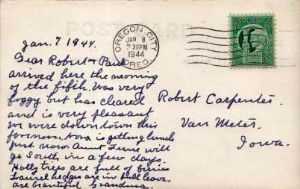 POST CARD
Jan. 7 1944.
OREGON CITY
JAN 8
9 30 PM
1944
OREG.
Dear Robert & Paul
arrived here the morning
of the fifth. Was very
foggy but has cleared
and is very pleasant
on were down town this
fornoon. Eva is getting lunch
just now Aunt Irene will
go South, in a few days.
Holly trees are full of berries
Laurel hedges are in full leave
are beautiful Grandma.
Robert Carpenter
Van Meter,
Iowa.